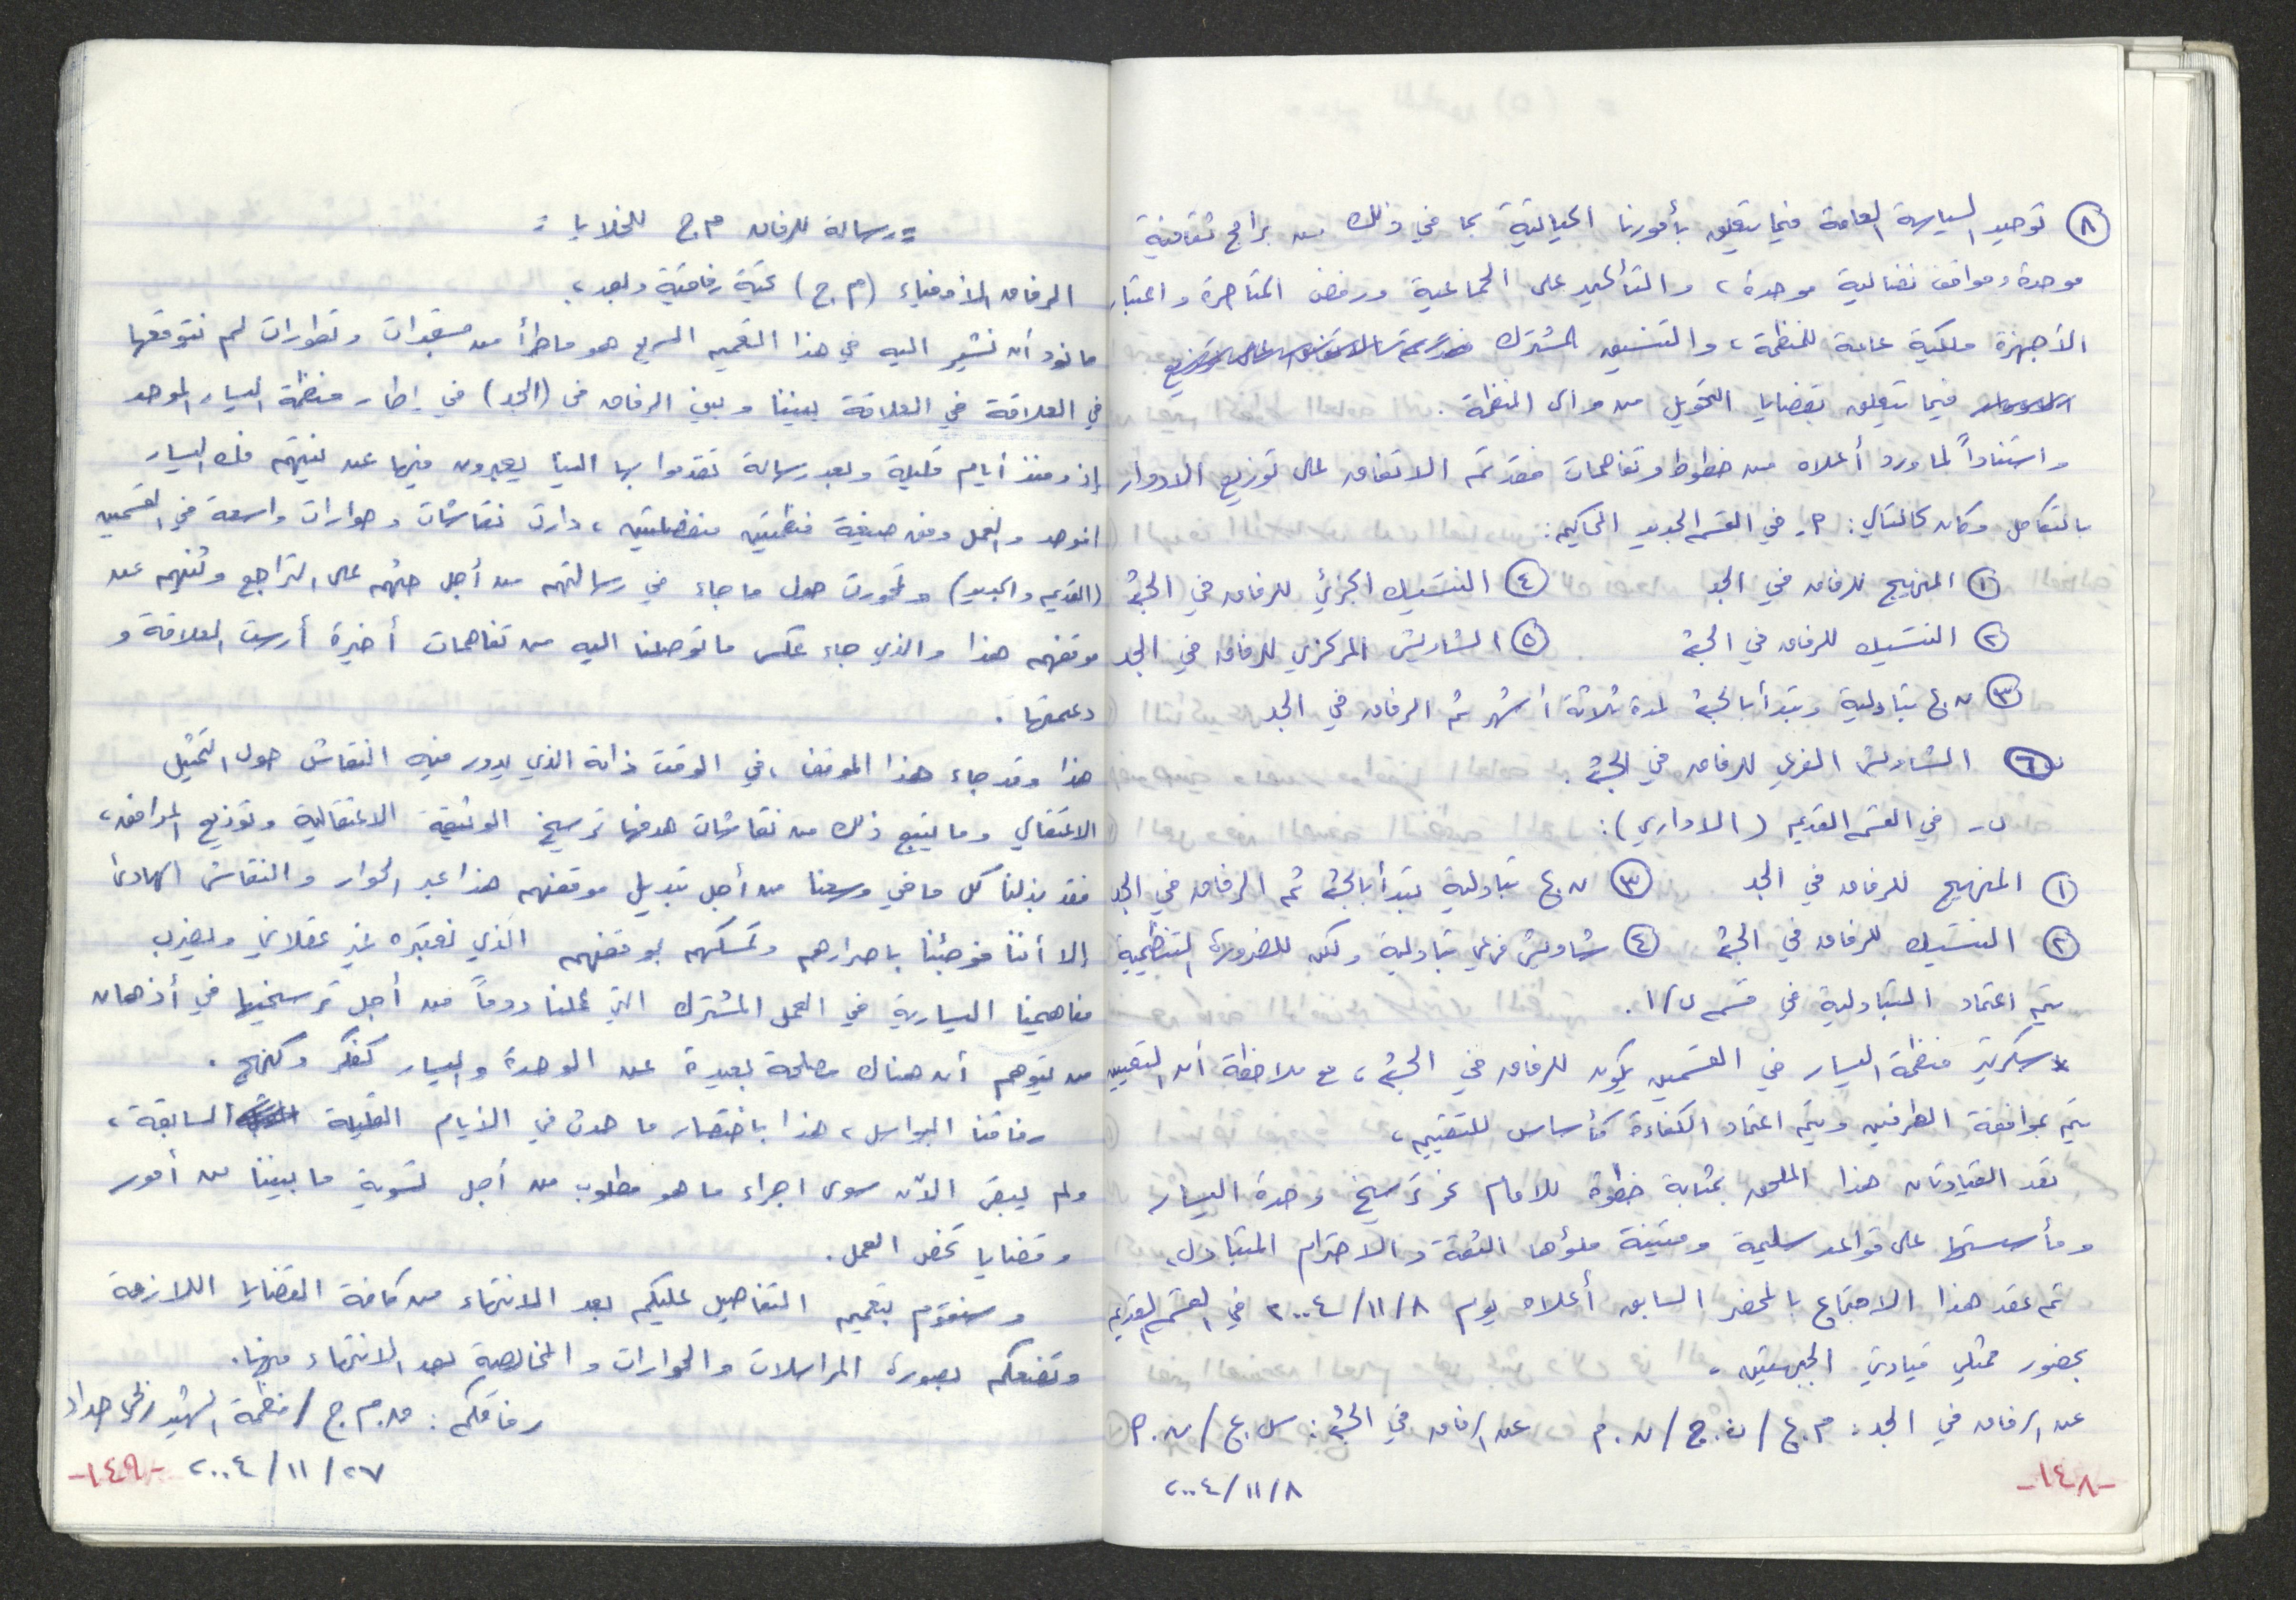 ٨ توحيد السياسة العامة فيما يتعلق بأمورنا الحياتية بما في ذلك من برامج ثقافية
موحدة ومواقف نضالية موحدة، والتأكيد على الجماعية ورفض المتاجرة واعتبار
الأجهزة ملكية عامة للمنظمة، والتنسيق المشترك
فيما يتعلق بقضايا التحويل من والى المنظمة.
واستناداً لما ورد أعلاه من خطوط وتفاهمات فقد تم الاتفاق على توزيع الادوار
بالتكامل وكان كالتالي: في القسم الجديد المحاكيم:
١ المنهيج للرفاق في الجد ٤ التشيك الجزئي للرفاق في الجش
٢ التشيك للرفاق في الجش ٥ الشاويش المركزي للرفاق في الجد
٣ ن.ع تبادلية وتبدأ بالجش لمدة ثلاثة أشهر ثم الرفاق في الجد
٦ الشاويش الفرعي للرفاق في الجش.
ب- في القسم القديم (الاداري):
١ المنهيج للرفاق في الجد ٣ ن.ع تبادلية تبدأ بالجش ثم الرفاق في الجد
٢ التشيك للرفاق في الجش ٤ شاويش فرعي تبادلية ولكن للضرورة التنظيمية
يتم اعتماد التبادلية في قسم ب/١.
* سكرتير منظمة اليسار في القسمين يكون للرفاق في الجش، مع ملاحظة أن التعيين
يتم بموافقة الطرفين ويتم اعتماد الكفاءة كأساس للتقييم،
تعد القيادتان هذا الملحق بمثابة خطوة للامام نحو ترسيخ وحدة اليسار
ومأسستها على قواعد سليمة ومتينة ملؤها الثقة والاحترام المتبادل،
تم عقد هذا الاجتماع بالمحضر السابق أعلاه يوم ٨/١١/٢٠٠٤ في القسم القديم
بحضور ممثلي قيادتي الجبهتين،
عن الرفاق في الجد: م.ع/ن.ج/ن.م عن الرفاق في الجش: س.ع/ن.م
٨/١١/٢٠٠٤
-١٤٨-
= رسالة للرفاق م.ج للخلايا =
الرفاق الأوفياء (م.ج) تحية رفاقية وبعد،
ما نود أن نشير اليه في هذا التعميم السريع هو ما طرأ من مستجدات وتطورات لم نتوقعها
في العلاقة في العلاقة بيننا وبين الرفاق في (الجد) في إطار منظمة اليسار الموحد
إذ ومنذ أيام قليلة وبعد رسالة تقدموا بها الينا يعبرون فيها عن نيتهم فك اليسار
الموحد والعمل وفق صيغة منظمتين منفصلتين، دارت نقاشات وحوارات واسعة في القسمين
(القديم والجديد) وتمحورت حول ما جاء في رسالتهم من أجل حثهم على التراجع وثنيهم عن
موقفهم هذا والذي جاء عكس ما توصلنا اليه من تفاهمات أخيرة أرست العلاقة و
دعمتها.
هذا وقد جاء هذا الموقف، في الوقت ذاته الذي يدور فيه النقاش حول التمثيل
الاعتقالي وما يتبع ذلك من نقاشات هدفها ترسيخ الوثيقة الاعتقالية وتوزيع المرافق،
فقد بذلنا كل ما في وسعنا من أجل تبديل موقفهم هذا عبر الحوار والنقاش الهادئ
إلا أننا فوجئنا باصرارهم وتمسكهم بموقفهم الذي نعتبره غير عقلاني ويضرب
مفاهيمنا اليسارية في العمل المشترك التي عملنا دوماً من أجل ترسيخها في أذهان
من يتوهم أن هناك مصلحة بعيدة عن الوحدة واليسار كفكر وكنهج.
رفاقنا البواسل، هذا باختصار ما حدث في الأيام القليلة السابقة،
ولم يبقى الآن سوى اجراء ما هو مطلوب من أجل تسوية ما بيننا من أمور
وقضايا تخص العمل.
وسنقوم بتعميم التفاصيل عليكم بعد الانتهاء من كافة القضايا اللازمة
وتضعكم بصورة المراسلات والحوارات والمخالصة بعد الانتهاء منها.
رفاقكم: ق.م.ج/منظمة الشهيد حداد
٢٧/١١/٢٠٠٤
-١٤٩-